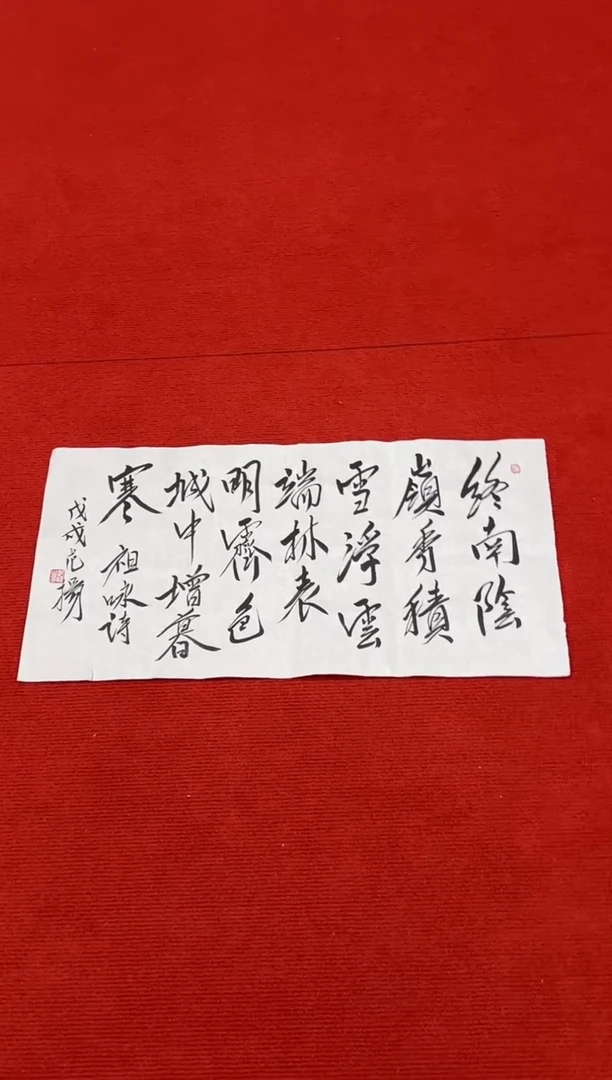 終南陰
嶺秀積
雪浮雲
端林表
明霽色
城中增暮
寒 祖咏詩
戊戌范揚